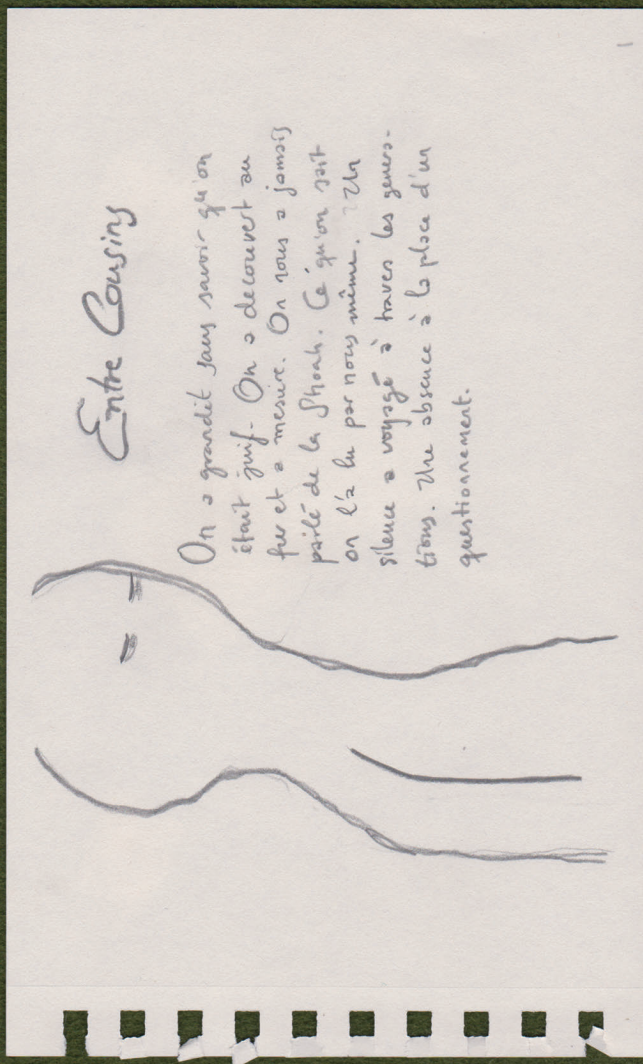 Entre Cousins
On a grandit sans savoir qu'on
était juif. On a decouvert au
fur et a mesure. On nous a jamais
parlé de la Shoah. Ce qu'on sait
on l'a lu par nous même. Un
silence a voyagé à travers les genera-
tions. Une absence à la place d'un
questionnement.